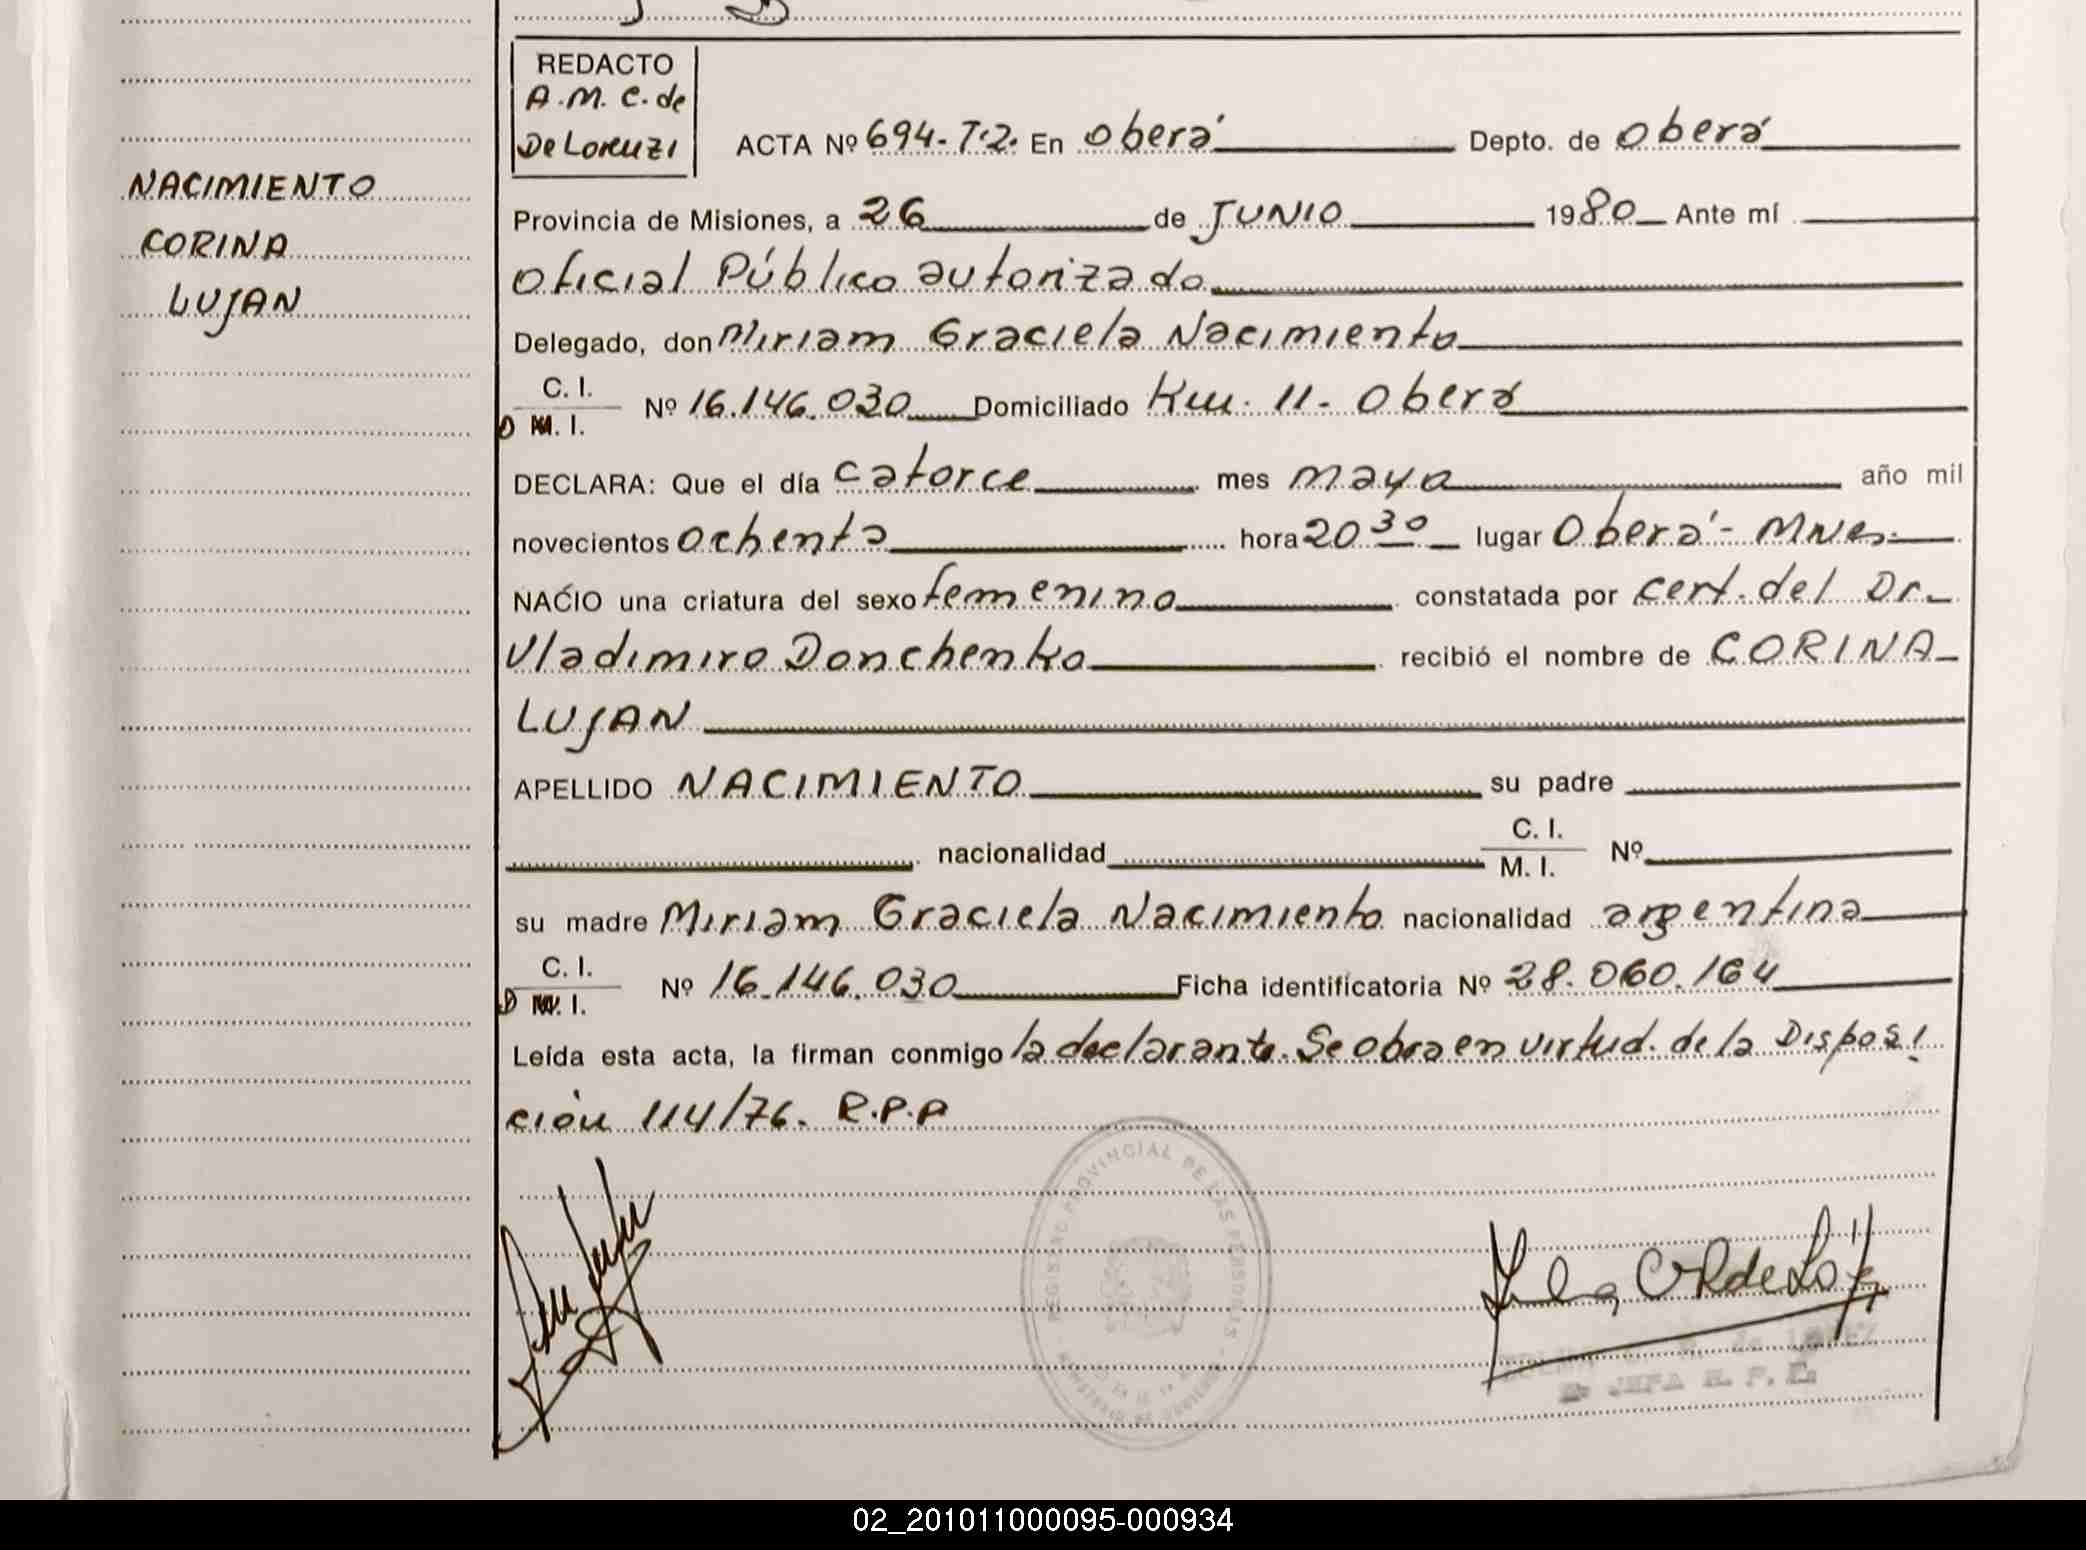 REDACTO
A.M.C. de
De Lorenzi
ACTA Nº 694-T.2. En Oberá Depto. de Oberá
NACIMIENTO
CORINA
LUJAN
Provincia de Misiones, a 26 de JUNIO 1980 Ante mí
Oficial Público autorizado
Delegado, don Miriam Graciela Nacimiento
C. I.
D M. I. Nº 16.146.030 Domiciliado Km. 11- Oberá
DECLARA: Que el día catorce mes mayo año mil
novecientos ochenta hora 20 30 lugar Oberá - Mnes.
NACIO una criatura del sexo femenino constatada por cert. del Dr.
Vladimiro Donchenko recibió el nombre de CORINA
LUJAN
APELLIDO NACIMIENTO su padre
nacionalidad C. I. M. I. Nº
su madre Miriam Graciela Nacimiento nacionalidad argentina
C. I.
D M. I. Nº 16.146.030 Ficha identificatoria Nº 28.060.164
Leída esta acta, la firman conmigo la declarante. Se obra en virtud de la Disposi
ción 114/76. R.P.P
REGISTRO PROVINCIAL DE LAS PERSONAS
de LOPEZ
JEFA R. P. P.
02_201011000095-000934